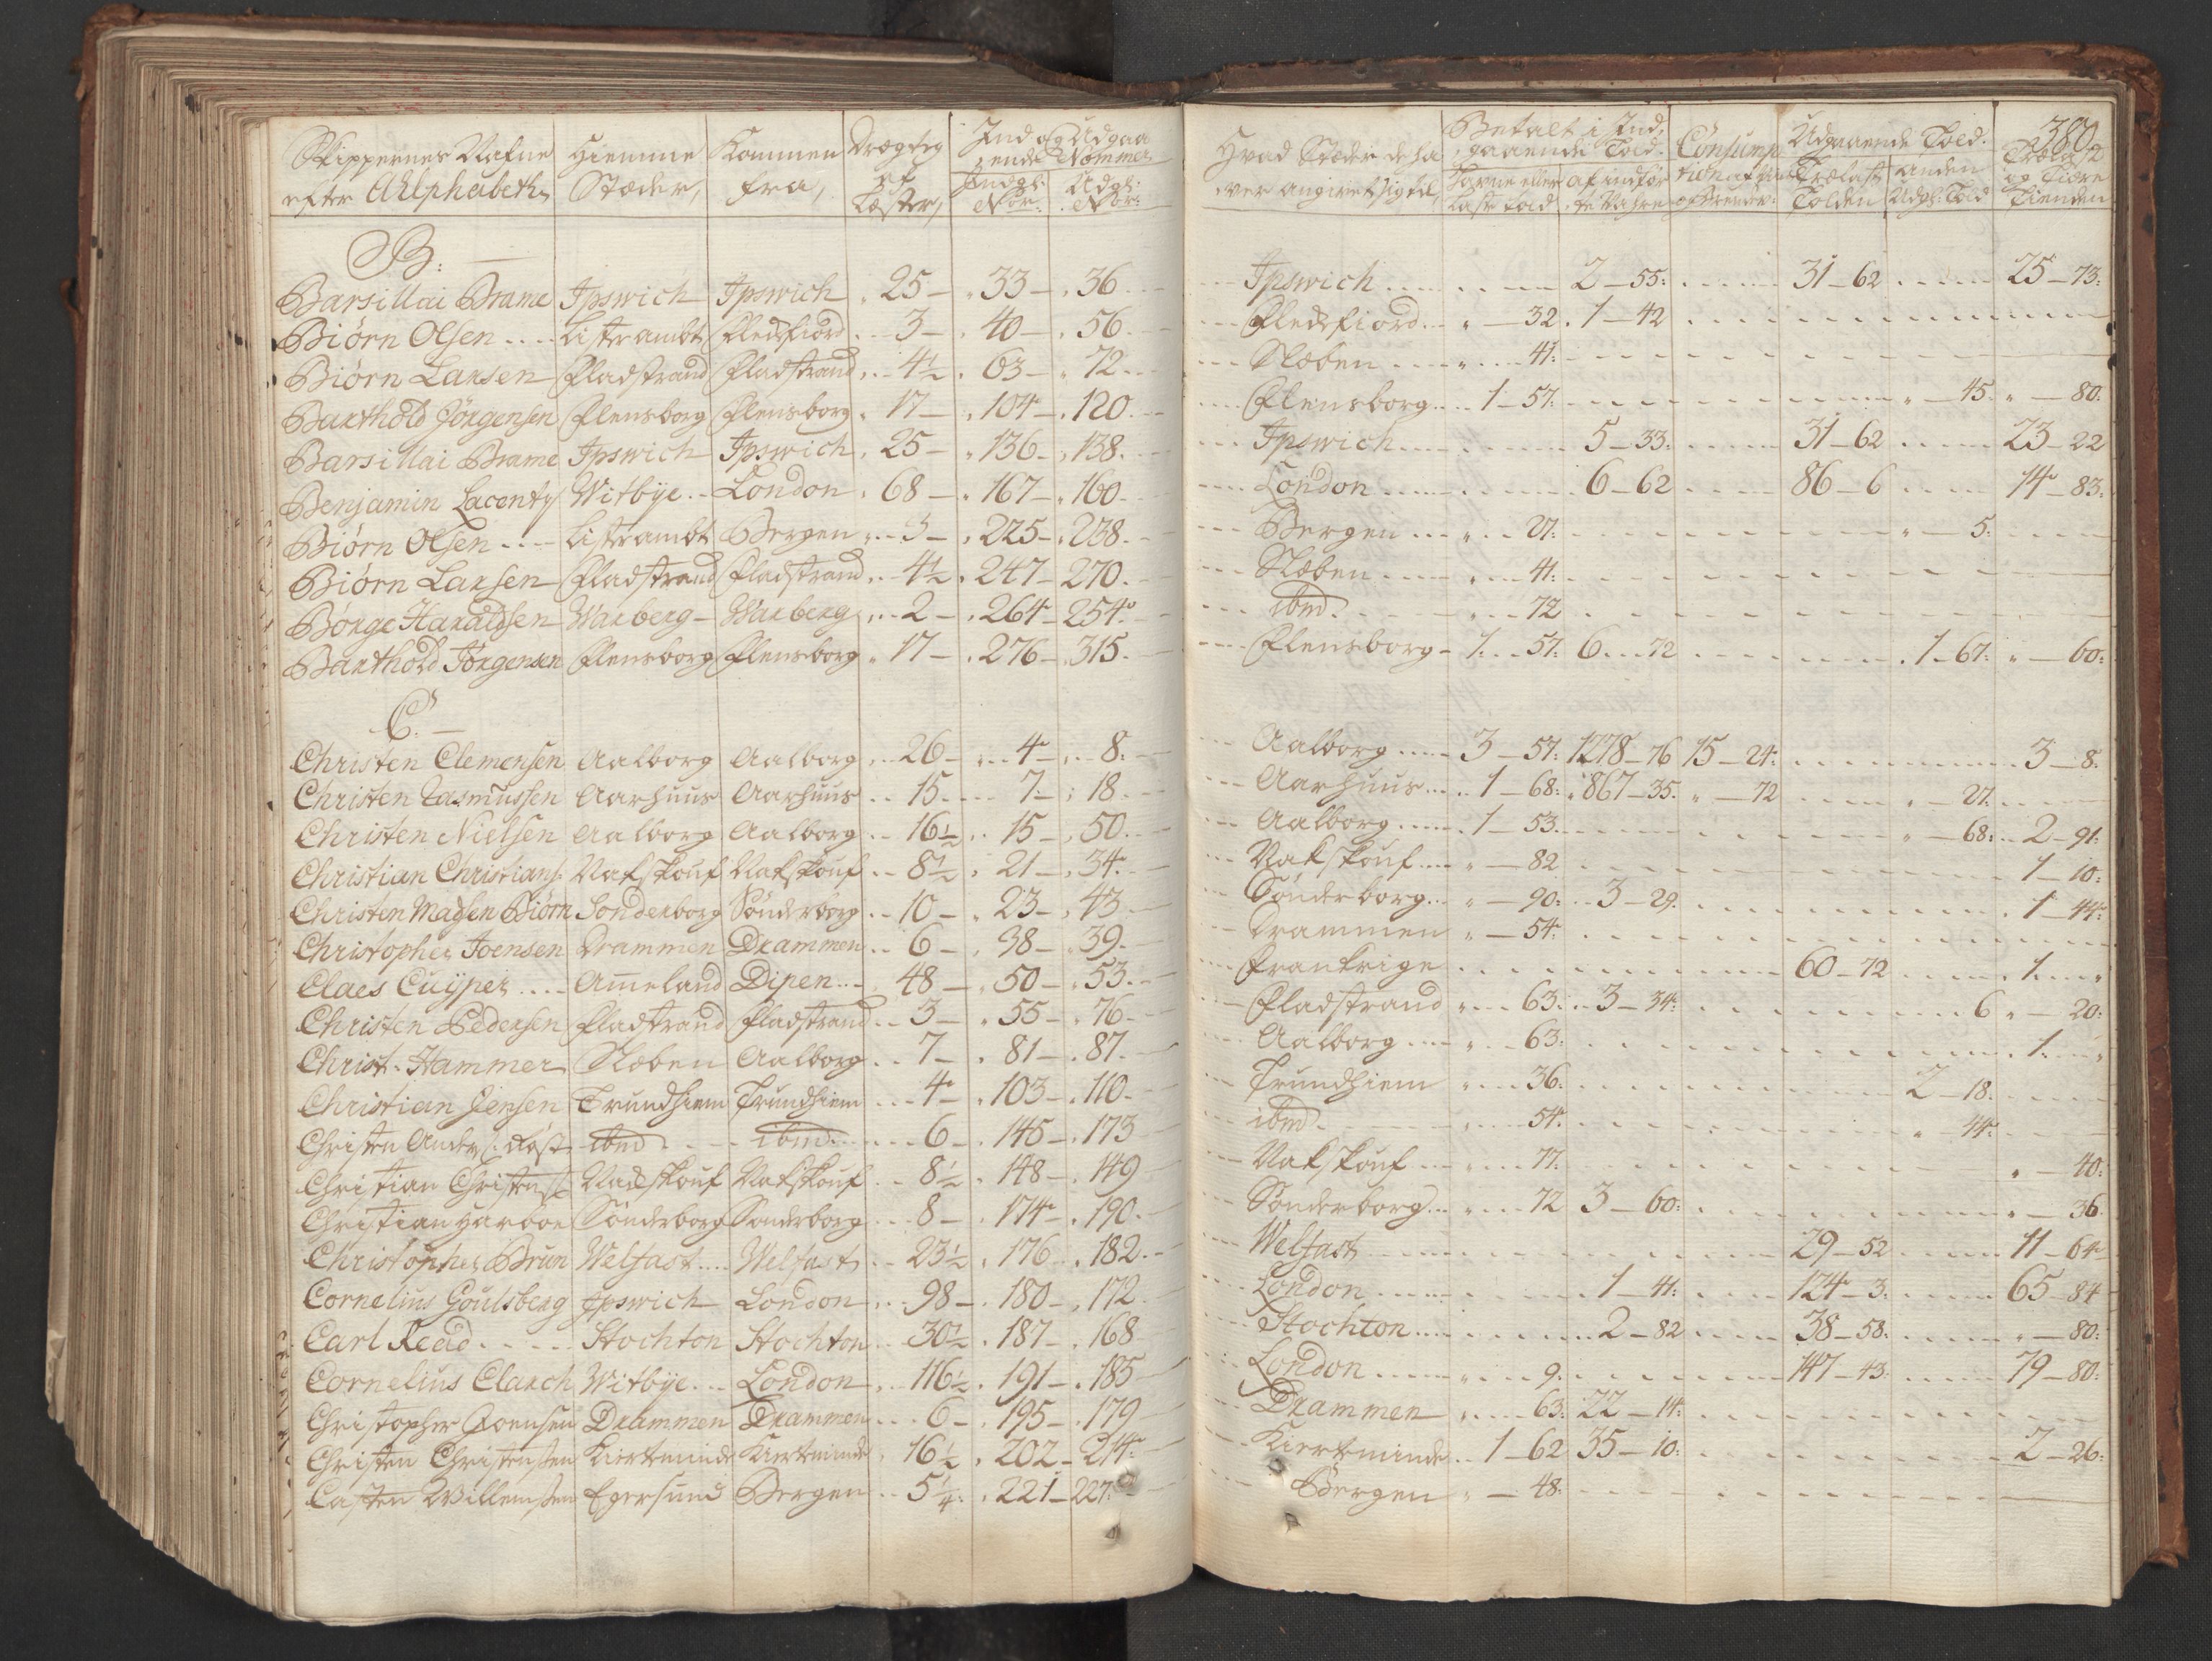 Skippernes Nafne Hiemme Kommen Drægtig Ind og Udgaa
efter Alphabeth Stæder, fra, af Læster, ende Nommer
Indg: Nor: Udg: Nor:
B:
Barsillai Brame Ipswich Ipswich 25 — 33 — 36
Biørn Olsen Listerambt Fledefiord 3 — 40 — 56
Biørn Larsen Fladstrand Fladstrand 4½ 63 — 72
Barthold Jørgensen Flensborg Flensborg 17 — 104 — 120
Barsillai Brame Ipswich Ipswich 25 — 136 — 138
Benjamin Lacenty Witbye London 68 — 167 — 160
Biørn Olsen Listerambt Bergen 3 — 225 — 238
Biørn Larsen Fladstrand Fladstrand 4½ 247 — 270
Børge Haraldsen Warberg Warberg 2 — 264 — 254
Barthold Jørgensen Flensborg Flensborg 17 — 276 — 315
C.
Christen Clemensen Aalborg Aalborg 26 — 4 — 8
Christen Rasmussen Aarhuus Aarhuus 15 7 — 18
Christen Nielsen Aalborg Aalborg 16½ 15 — 50
Christian Christians: Nakskouf Nakskouf 8½ 21 — 34
Christen Madsen Biørn Sonderborg Sønderborg 10 — 23 — 43
Christopher Joensen Drammen Drammen 6 — 38 — 39
Claes Cuyper Ameland Dipen 48 — 50 — 53
Christen Pedersen Fladstrand Fladstrand 3 — 55 — 76
Christ. Hammer Slæben Aalborg 7 — 81 — 87
Christian Jensen Trundhiem Trundhiem 4 — 103 — 110
Christen Anders: Røst ibid ibid 6 — 145 — 173
Christian Christens: Nakskouf Nakskouf 8½ 148 — 149
Christian Harboe Sønderborg Sønderborg 8 — 174 — 190
Christopher Brun Welfast Welfast 23½ 176 182
Cornelius Goulsberg Ipswich London 98 — 180 — 172
Carl Read Stochton Stochton 30½ 187 — 168
Cornelius Clarch Witbye London 116½ 191 — 185
Christopher Joensen Drammen Drammen 6 — 195 — 179
Christen Christensen Kierteminde Kierteminde 16½ 202 — 214
Casten Willemsen Egersund Bergen 5¼ 221 — 227
380
Hvad Stæder de ha Betalt i Ind, Consump Udgaaende Told. Trælast
gaaende Told
ver angivet sig til, Havne eller af indfør tion Trælast anden og Tiere
Laste Told te Vahre Tolden Udg: Told Tienden
Ipswich 2 — 55 31 — 62 25 — 73
Fledefiord — 32 1 — 42
Slæben 41
Flensborg 1 — 57 — 45 — 80
Ipswich 5 — 33 31 — 62 23 — 22
London 6 — 62 86 — 6 14 — 83
Bergen 27 — 5
Slæben 41
ibid 72
Flensborg 1 57 6 72 1 — 67 — 60
Aalborg 3 — 57 1278 — 76 15 — 24 3 — 8
Aarhuus 1 — 68 867 — 35 — 72 — 27
Aalborg 1 — 53 — 68 2 — 91
Nakskouf — 82 1 — 10
Sønderborg — 90 3 — 29 1 — 44
Drammen — 54
Frankrige 60 — 72 1
Fladstrand 63 3 — 34 6 — 20
Aalborg 63 1
Trundhiem 36 2 — 18
ibid 54 — 44
Nakskouf 77 — 40
Sønderborg 72 3 — 60 — 36
Welfast 29 — 52 11 — 64
London 1 — 41 124 — 3 65 — 84
Stochton 2 — 82 38 — 58 — 80
London 9 147 — 43 79 — 80
Drammen 63 22 — 14
Kierteminde 1 — 62 35 — 10 2 — 26
Bergen — 48